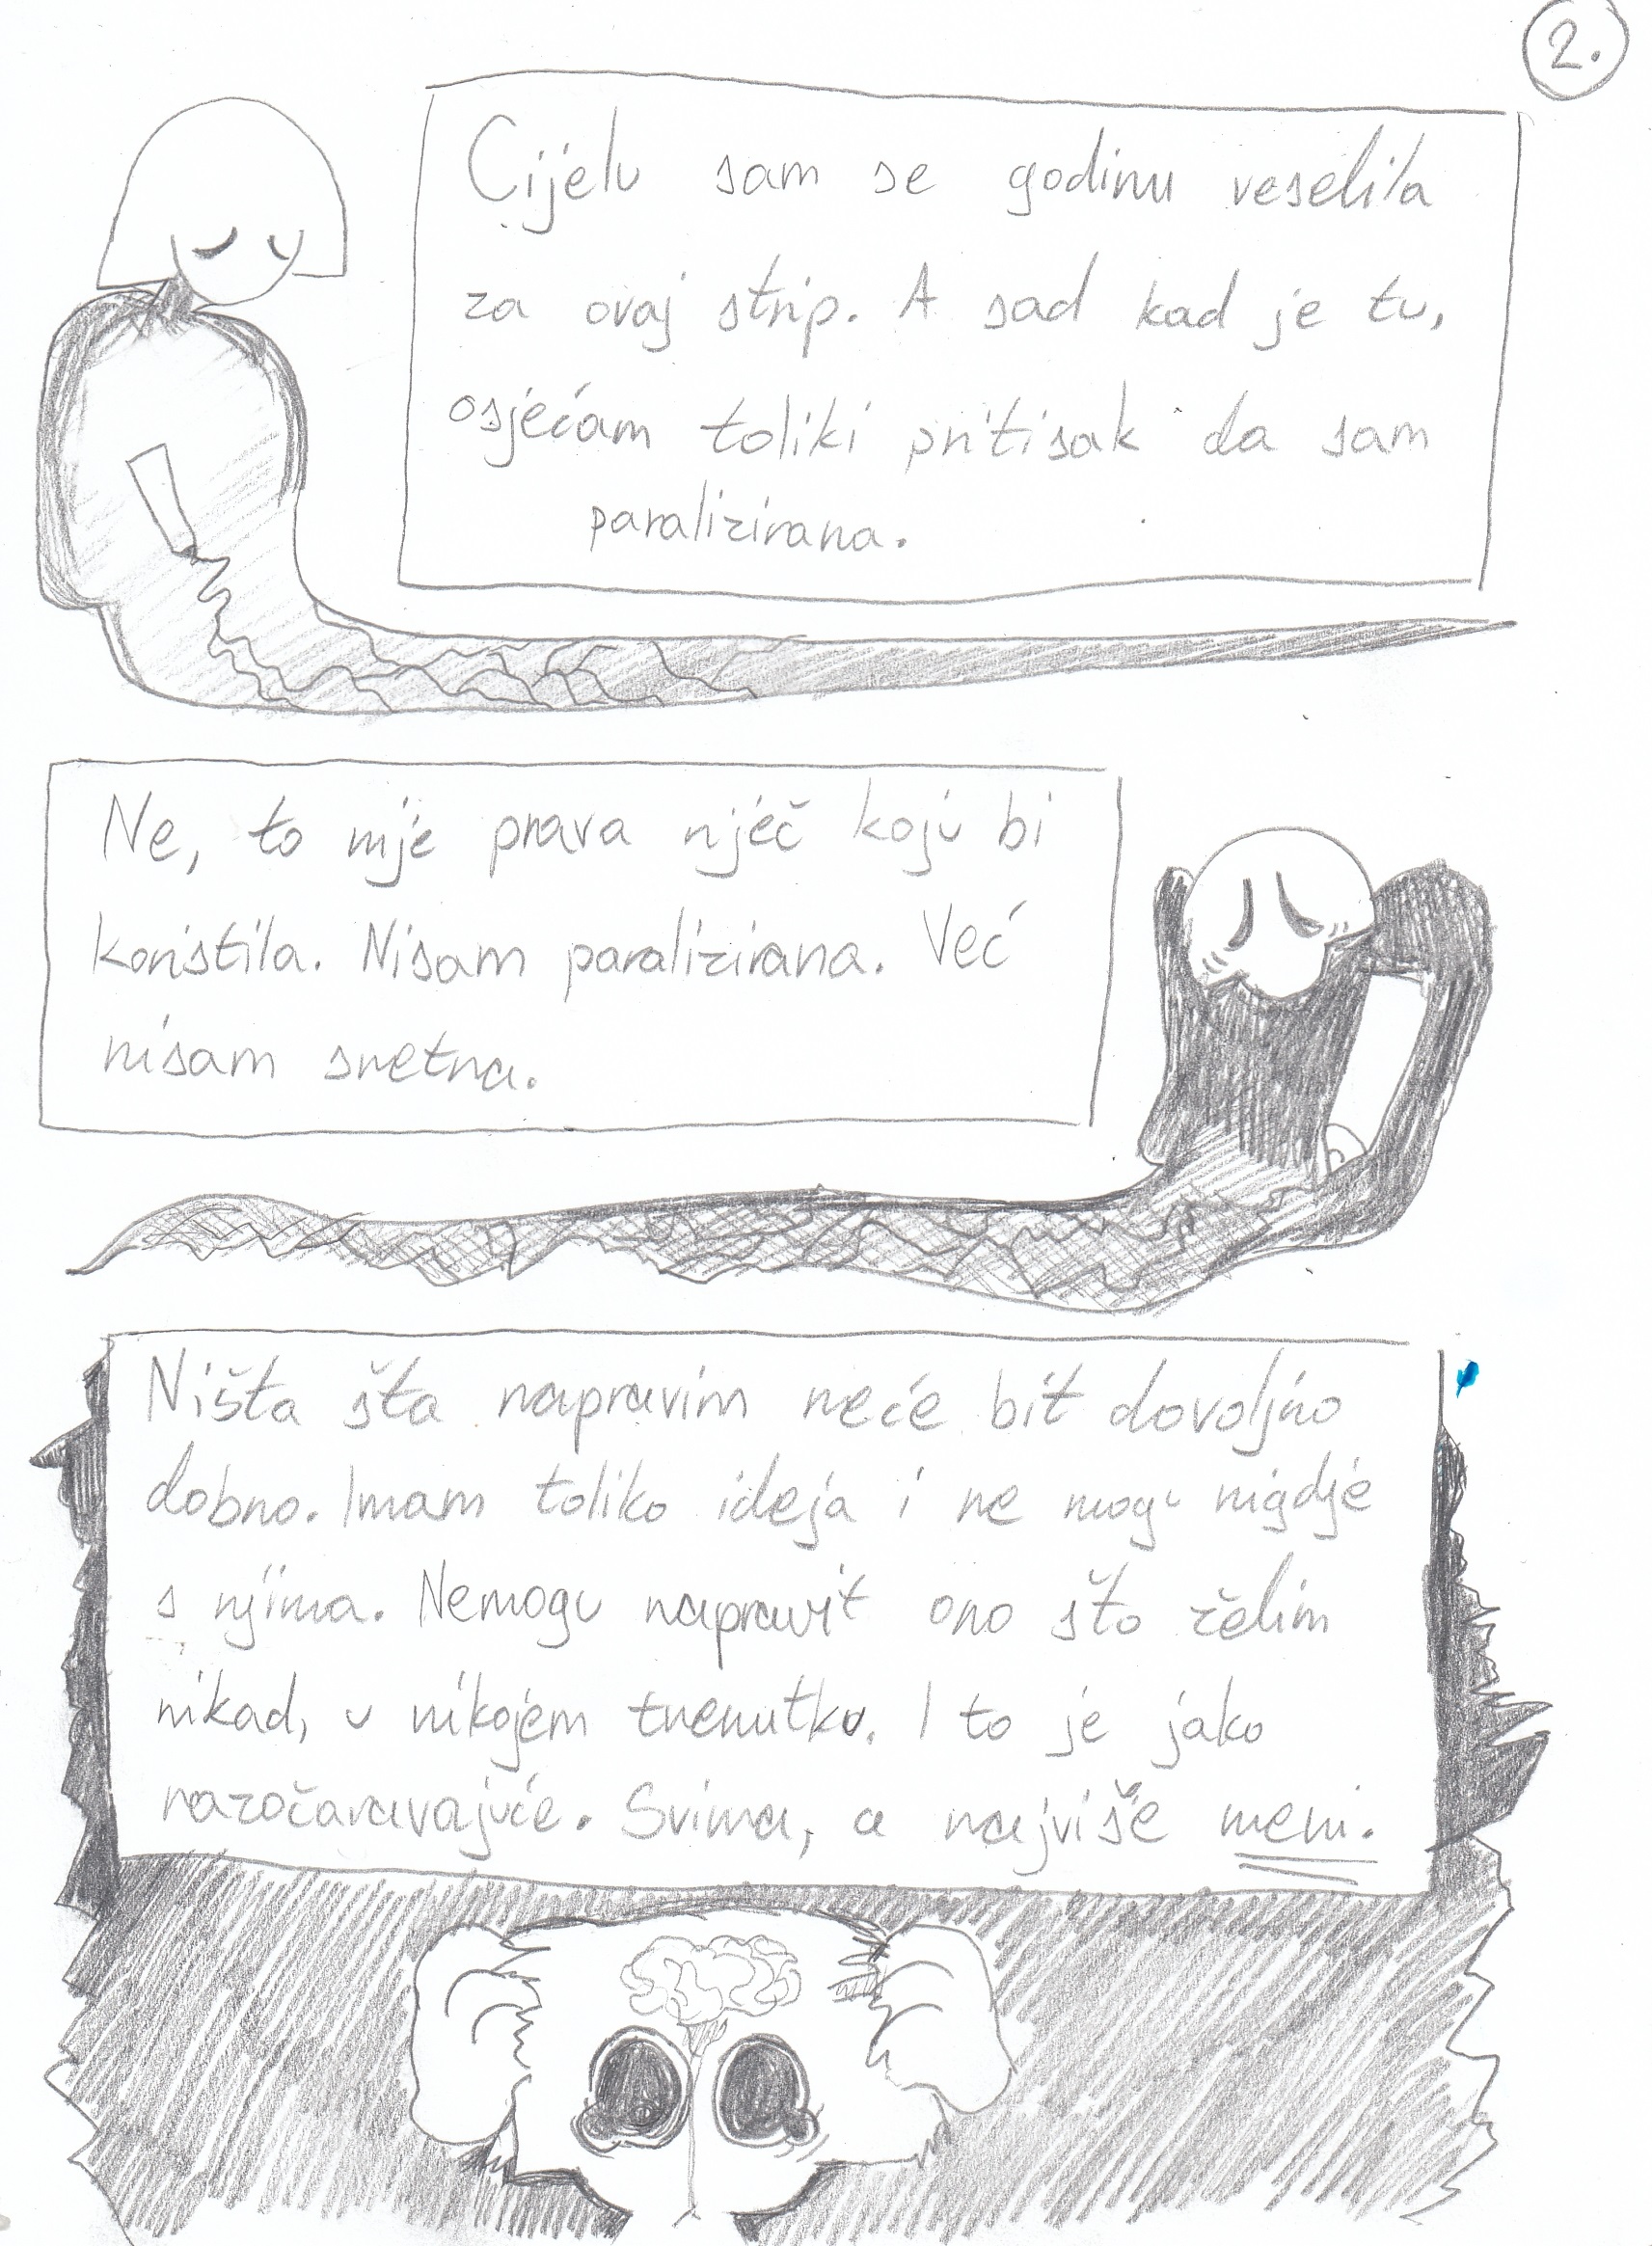 2.
Cijelu sam se godinu veselila
za ovaj strip. A sad kad je tu,
osjećam toliki pritisak da sam
paralizirana.
Ne, to nije prava riječ koju bi
koristila. Nisam paralizirana. Već
nisam sretna.
Ništa šta napravim neće bit dovoljno
dobro. Imam toliko ideja i ne mogu nigdje
s njima. Nemogu napravit ono što želim
nikad, u nikojem trenutku. I to je jako
razočaravajuće. Svima, a najviše meni.